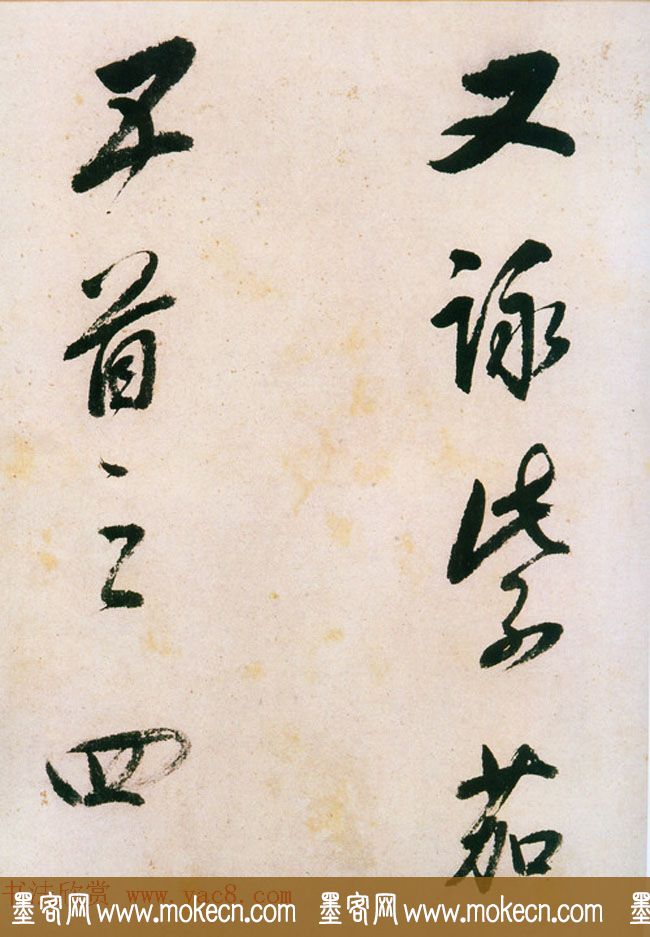 又詠紫茄
五首之四
书法欣赏 www.yac8.com
墨客网 www.mokecn.com 墨客网 www.mokecn.com